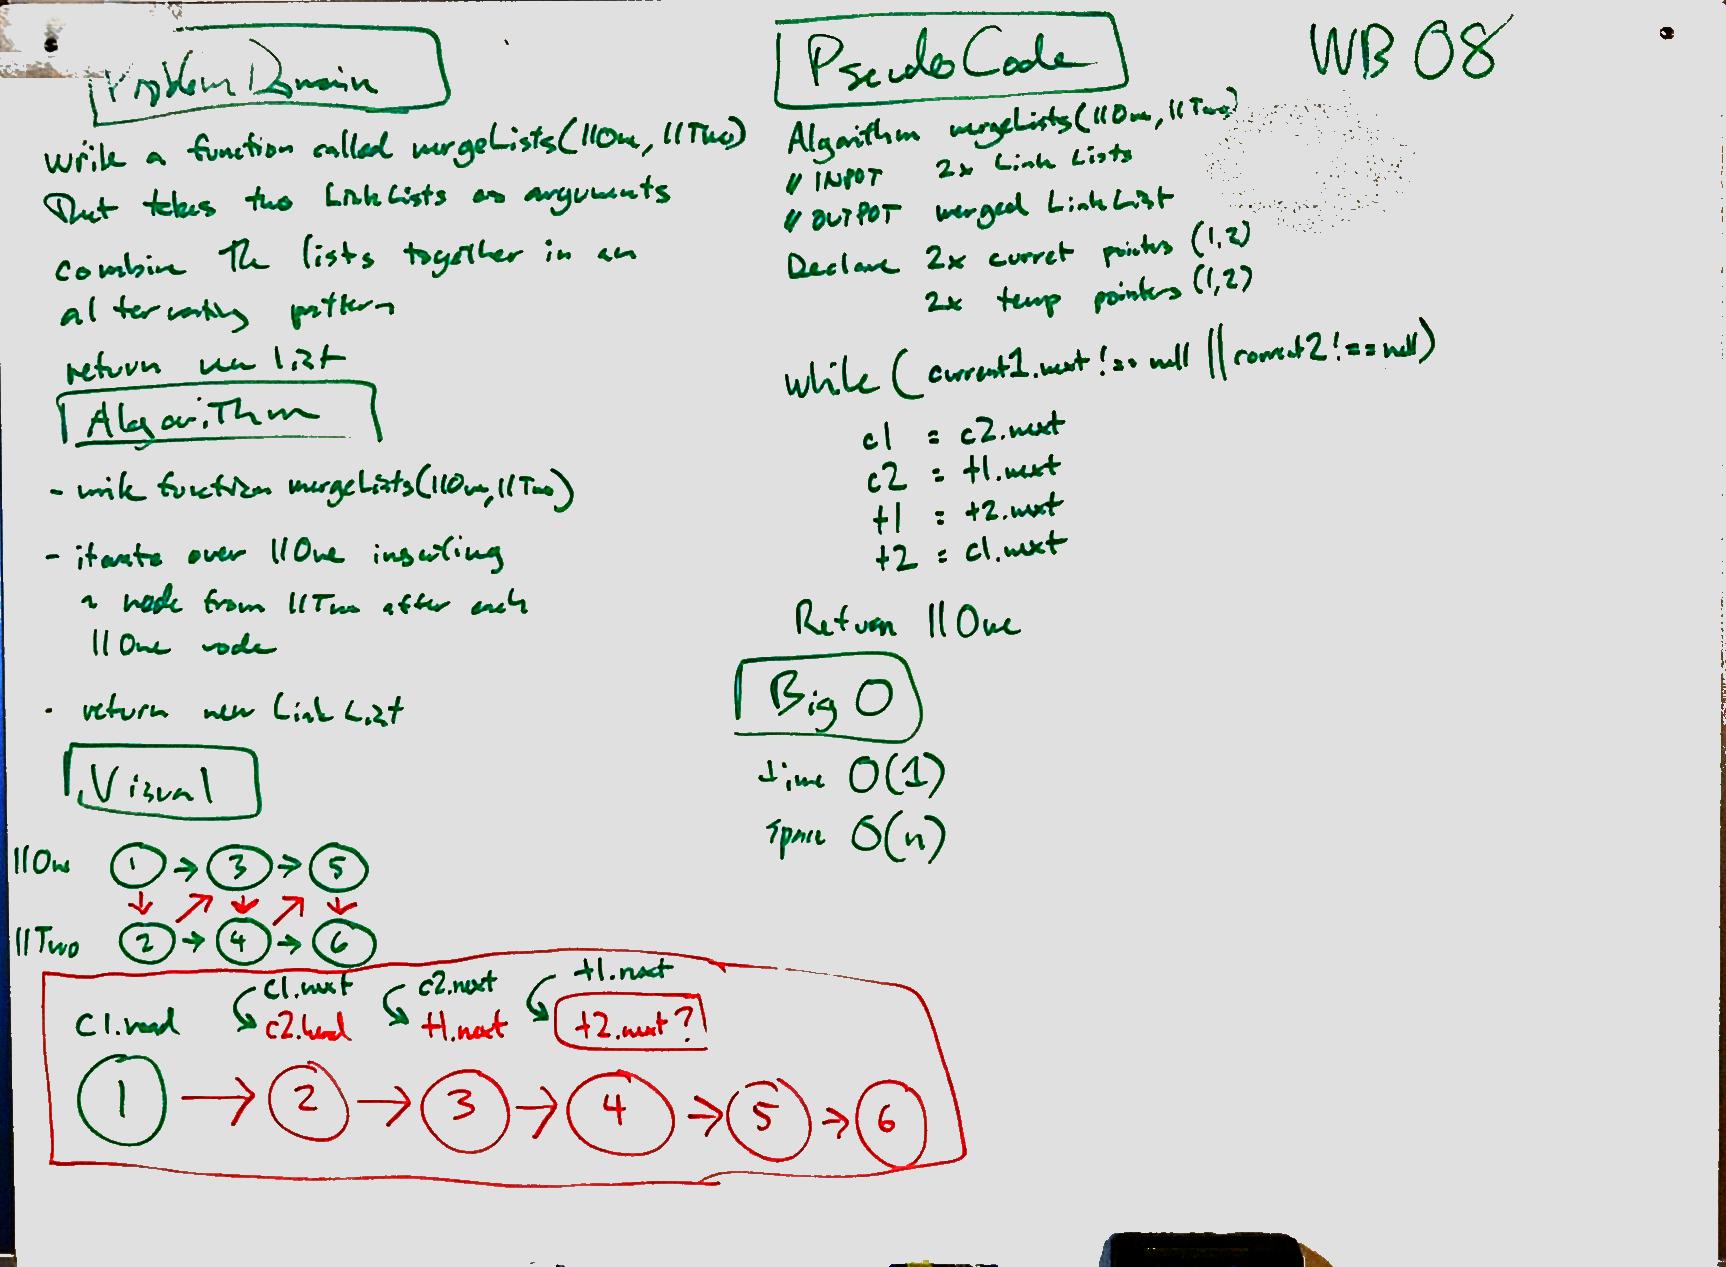 Problem Domain
write a function called mergeLists(llOne, llTwo)
That takes two LinkLists as arguments
combine the lists together in an
alternating pattern
return new list
Algorithm
- write function mergeLists(llOne, llTwo)
- iterate over llOne inserting
a node from llTwo after each
llOne node
- return new Link List
Visual
llOne 1 → 3 → 5
↓ ↗ ↓ ↗ ↓
llTwo 2 → 4 → 6
c1.next c2.next t1.next
C1.head c2.head t1.next t2.next?
1 → 2 → 3 → 4 → 5 → 6
Pseudo Code
Algorithm mergeLists(llOne, llTwo)
// INPUT 2x Link Lists
// OUTPUT merged Link List
Declare 2x curret pointers (1,2)
2x temp pointers (1,2)
while (current1.next !== null || current2 !== null)
c1 = c2.next
c2 = t1.next
t1 = t2.next
t2 = c1.next
Return llOne
Big O
time O(1)
space O(n)
WB 08